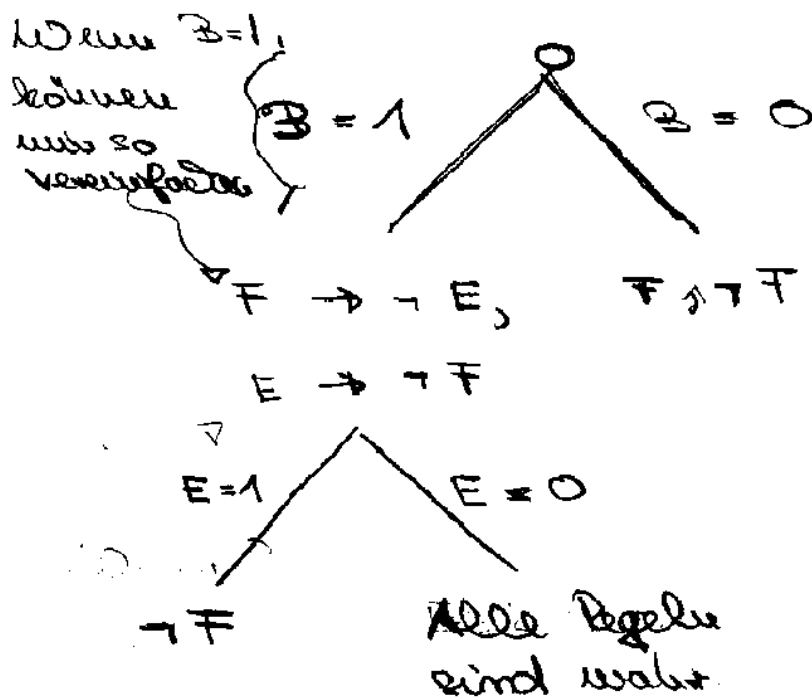 Wenn B=1,
können
wir so
vereinfachen
B = 1
B = 0
F → ¬ E,
F, ¬ F
E → ¬ F
E=1
E = 0
¬ F
Alle Regeln
sind wahr